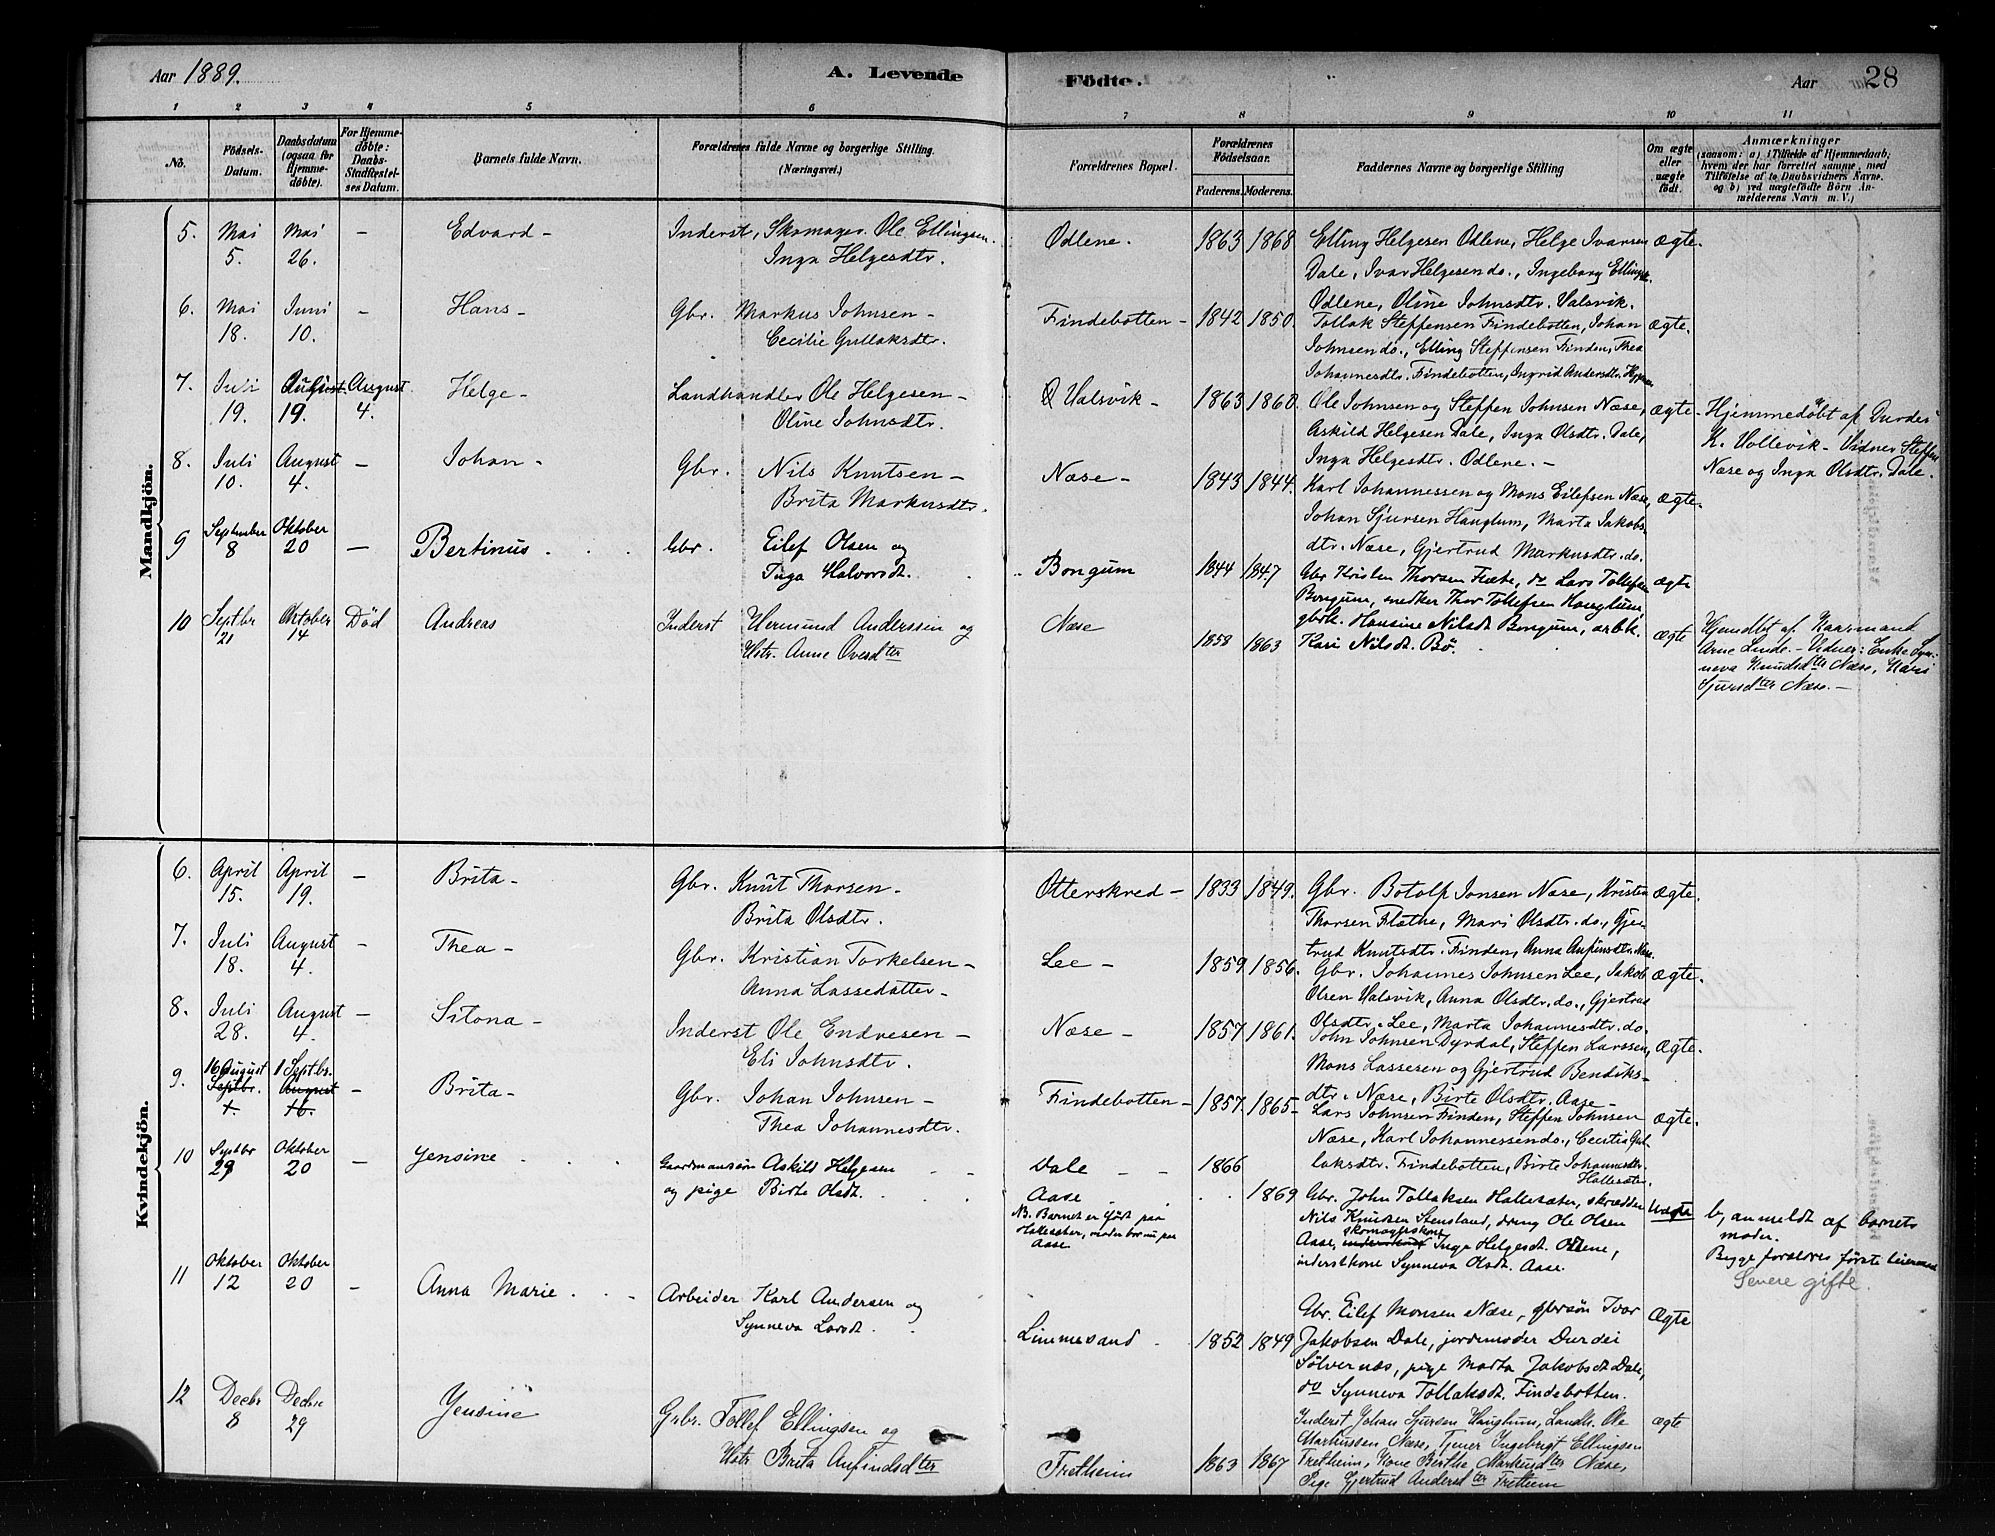 Aar 1889.
A. Levende Födte.
Aar 28
1 2 3 4 5 6 7 8 9 10 11
No.
Födsels-Datum.
Daabsdatum (ogsaa for Hjemmedöbte).
For Hjemmedöbte: Daabs-Stadfæstelses Datum.
Barnets fulde Navn.
Forældrenes fulde Navne og borgerlige Stilling. (Næringsvei.)
Forældrenes Bopæl.
Forældrenes Födselsaar.
Faderens. Moderens.
Faddernes Navne og borgerlige Stilling
Om ægte eller uægte födt.
Anmærkninger
(saasom: a) i Tilfælde af Hjemmedaab; hvem der har forrettet samme, med Tilföielse af to Daabsvidners Navne, og b) ved uægtefödte Börn Anmelderens Navn m. V.)
Mandkjön.
5. Mai 5. Mai 26. – Edvard – Inderst, Skomager Ole Ellingsen.
Inga Helgesdtr.
Ödlene. 1863 1868 Elling Helgesen Ödlene, Helge Ivarsen ægte.
Dale, Ivar Helgesen do., Ingeborg Ellings
Ödlene, Oline Johnsdtr. Valsvik.
6. Mai 18. Juni 10. – Hans – Gbr. Markus Johnsen –
Cecilie Gullaksdtr.
Findebotten – 1842 1850. Tollak Steffensen Findebotten, Johan ægte.
Johnsen do., Elling Steffensen Finden, Thea
Johannesdtr. Findebotten, Ingrid Andersdtr.
7. Juli 19. August 19. August 4. Helge – Landhandler Ole Helgesen –
Oline Johnsdtr.
Valsvik – 1863 1860. Ole Johnsen og Steffen Johnsen Næse, ægte –
Askild Helgesen Dale, Inga Olsdtr. Dale,
Inga Helgesdtr. Ödlene. –
Hjemmedöbt af Durdei
K. Vollevik – Vidner Steffen
Næse og Inga Olsdtr. Dale.
8. Juli 10. August 4. – Johan – Gbr. Nils Knutsen –
Brita Markusdtr.
Næse – 1843 1844. Karl Johannessen og Mons Eilefsen Næse, ægte.
Johan Sjursen Hauglum, Marta Jakobs-
dtr. Næse, Gjertrud Markusdtr. do.
9 September 8 Oktober 20 – Bertinus . Gbr. Eilef Olsen og
Inga Halvorsdt.
Bongum 1844 1847 Gbr Kristen Thorsen Flæte, do Lars Tollefsen ægte
Bongum, snedker Thor Tollefsen Hauglum,
gbrk. Hansine Nilsdt Bongum, arbk.
Kari Nilsdt. Bø.
10 Septbr 21 Oktober 14 Död Andreas Inderst Hermund Anderssen og
Hstr. Anne Oversdter
Næse 1858 1863 ægte
Hjemdbt af Kaarmand
Arne Linde. – Vidner: Enke Syn-
neva Knudsdter Næse, Kari
Sjursdter Næse. –
Kvindekjön.
6. April 15. April 19. – Brita – Gbr. Knut Thorsen –
Brita Olsdtr.
Otterskred – 1833 1849. Gbr. Botolf Jonsen Næse, Kristen ægte.
Thorsen Flæthe, Mari Olsdtr. do., Gjer
trud Knutsdtr. Finden, Anna Anfinsdtr. Næse
7. Juli 18. August 4. – Thea – Gbr. Kristian Torkelsen –
Anna Lassedatter –
Lee – 1859 1856. Gbr. Johannes Johnsen Lee, Jakob ægte.
Olsen Valsvik, Anna Olsdtr. do., Gjertrud
Olsdtr. Lee, Marta Johannesdtr. do.
8. Juli 28. August 4. – Sitona – Inderst Ole Endresen –
Eli Johnsdtr.
Næse – 1857 1861. John Johnsen Dyrdal, Steffen Larssen, Ægte.
Mons Lassesen og Gjertrud Bendiks-
dtr. Næse, Birte Olsdtr. Aase –
9. 16 August Septbr. 1 1 Septbr. August 16. – Brita – Gbr. Johan Johnsen –
Thea Johannesdtr.
Findebotten – 1857 1865 – Lars Johnsen Finden, Steffen Johnsen ægte.
Næse, Karl Johannessen do., Cecilia Gul
laksdtr. Findebotten, Birte Johannesdtr.
Hallesæter.
10 Septbr 29 Oktober 20 – Jensine . Gaardmansøn Askild Helgesen
og pige Birte Olsdt.
Dale – 1866
Aase . . 1869
NB. Barnet er født paa
Hallesæter, moder bor nu paa
Aase
Gbr. John Tollaksen Hallesæter, skrædder Uægte
Nils Knudsen Stensland, dreng Ole Olsen
Aase, inderstkone skomagerskone Inga Helgesdt. Ødlene,
inderstkone Synneva Olsdt. Aase.
b, anmeldt af barnets
moder.
Begge forældres første leiermaal
Senere gifte.
11 Oktober 12 Oktober 20 – Anna Marie . – Arbeider Karl Andersen og
Synneva Larsdt.
Limmesand 1852 1849
Gbr. Eilef Monsen Næse, gbrsøn Ivar Ægte
Jakobsen Dale, jordemoder Durdei
Sølvernæs, pige Marta Jakobsdt Dale,
do Synneva Tollaksdt. Findebotten.
12 Decbr 8 Decbr 29 Jensine Grbr. Tollef Ellingsen og
Hstr Brita Anfindsdter
Fretheim 1863 1867
Inderst Johan Sjursen Hauglum, Landh. Ole ægte
Markussen Næse, Tjener Ingebrigt Ellingsen
Fretheim, Kone Berthe Markusdter Næse,
Pige Gjertrud Andersdter Fretheim